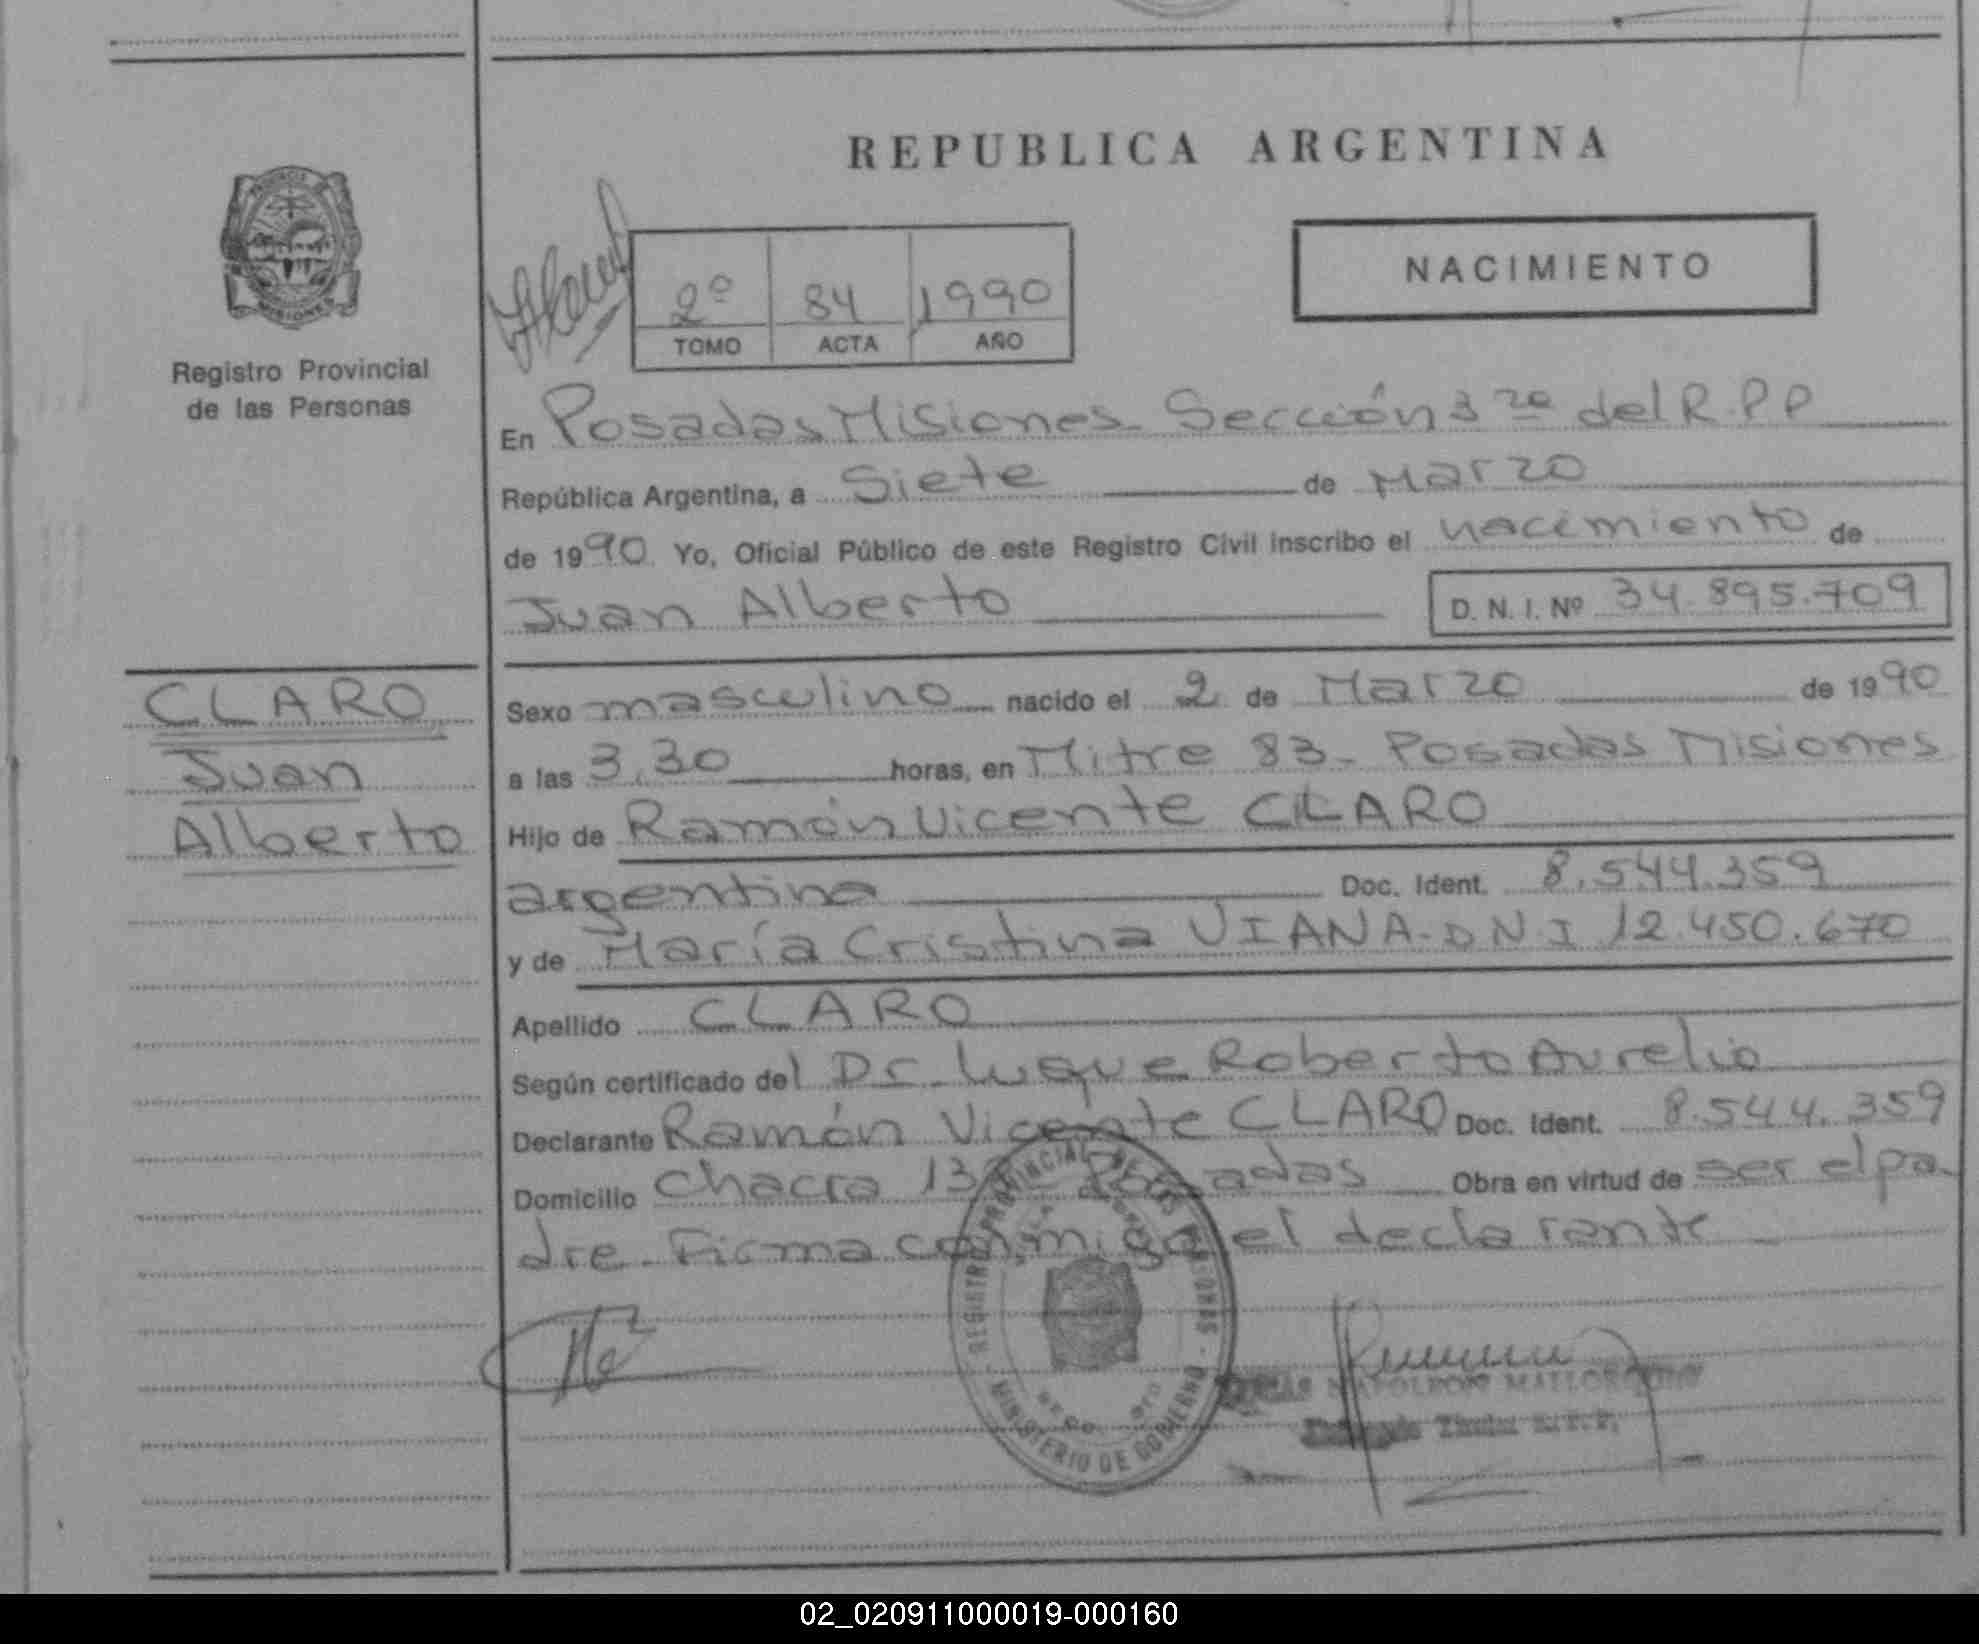 REPUBLICA ARGENTINA
NACIMIENTO
2º 84 1990
TOMO ACTA AÑO
Registro Provincial
de las Personas
En Posadas Misiones Sección 3ra del R.P.P
República Argentina, a Siete de Marzo
de 1990 Yo, Oficial Público de este Registro Civil inscribo el nacimiento de
Juan Alberto D. N. I. Nº 34.895.709
CLARO
Juan
Alberto
Sexo masculino nacido el 2 de Marzo de 1990
a las 3.30 horas, en Mitre 83 - Posadas Misiones
Hijo de Ramón Vicente CLARO
argentina Doc. Ident. 8.544.359
y de María Cristina VIANA - D N I 12.450.670
Apellido CLARO
Según certificado del Dr. Luque Roberto Aurelio
Declarante Ramón Vicente CLARO Doc. Ident. 8.544.359
Domicilio Chacra Posadas Obra en virtud de ser el pa-
dre - Firma conmigo el declarante
REGISTRO PROVINCIAL DE LAS PERSONAS - MINISTERIO DE GOBIERNO
NAPOLEON
Titular R.P.P.
02_020911000019-000160